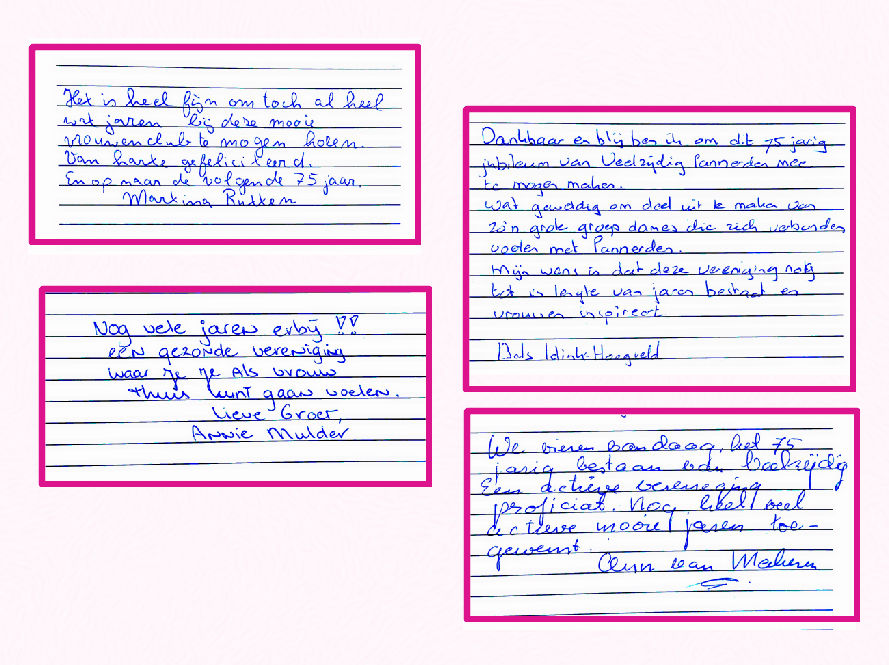 Het is heel fijn om toch al heel
wat jaren bij deze mooie
vrouwenclub te mogen horen.
Van harte gefeliciteerd.
En op naar de volgende 75 jaar.
Martina Rutten
Nog vele jaren erbij !!
een gezonde vereniging
waar je je als vrouw
thuis kunt gaan voelen.
Lieve Groet,
Annie Mulder
Dankbaar en blij ben ik om dit 75 jarig
jubileum van Veelzijdig Pannerden mee
te mogen maken.
Wat geweldig om deel uit te maken van
zo'n grote groep dames die zich verbonden
voelen met Pannerden.
Mijn wens is dat deze vereniging nog
tot in lengte van jaren bestaat en
vrouwen inspireert
We vieren vandaag, het 75
jarig bestaan van Veelzijdig
Een actieve vereniging
proficiat. Nog heel veel
actieve mooie jaren toe-
gewenst.
van